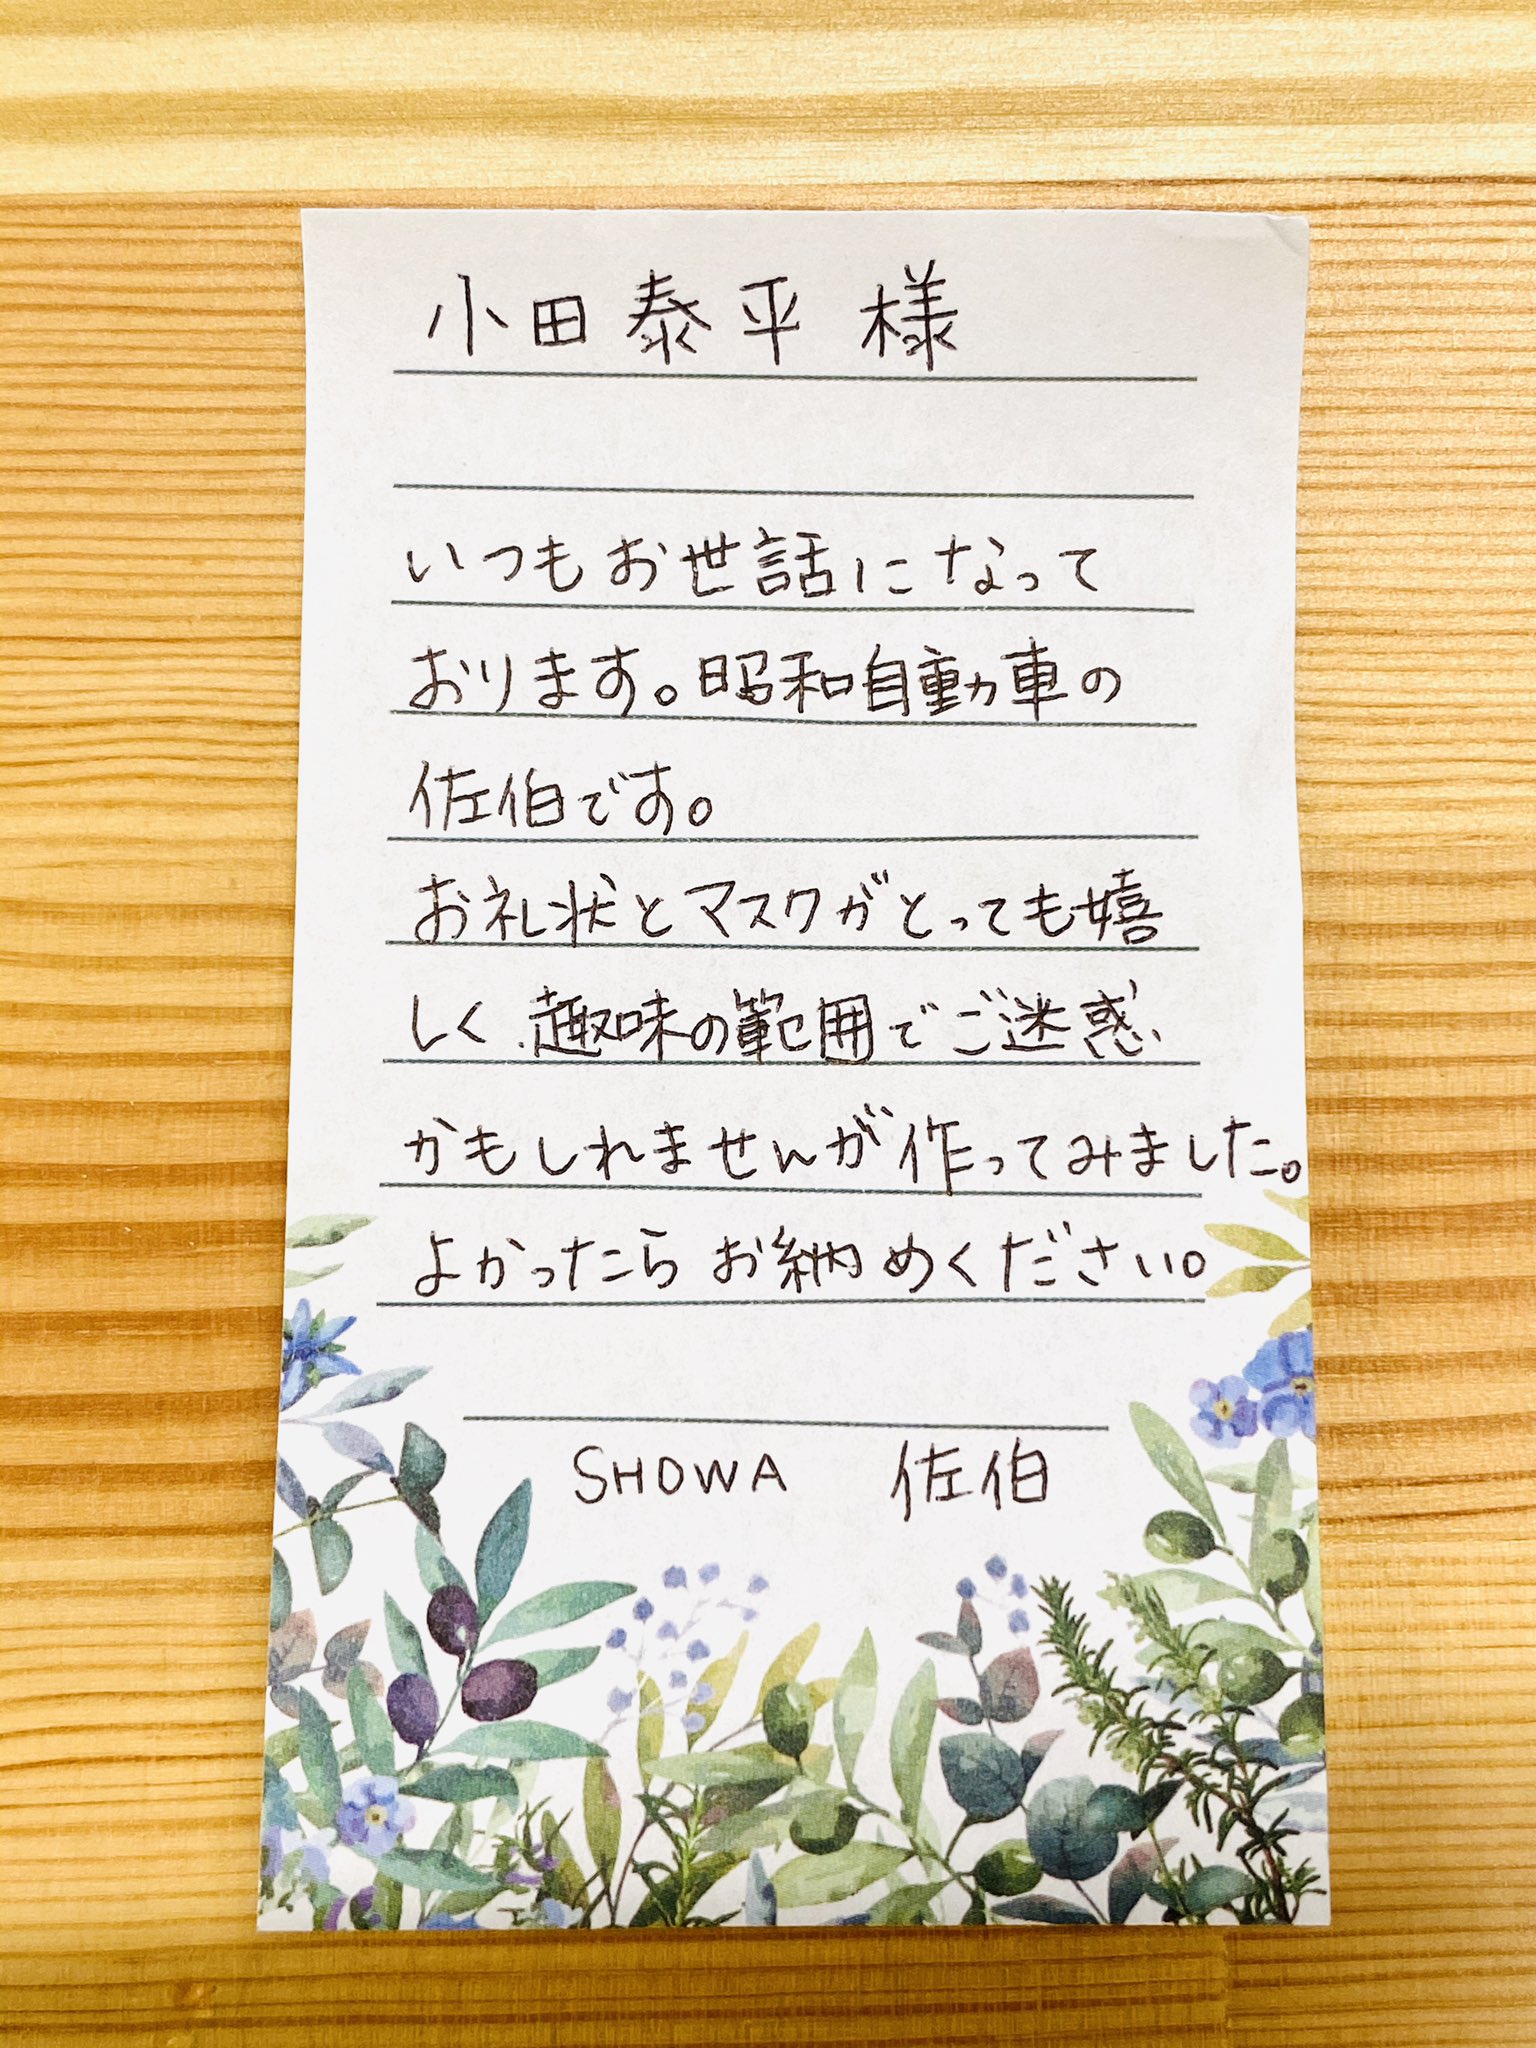 小田泰平 様
いつもお世話になって
おります。昭和自動車の
佐伯です。
お礼状とマスクがとっても嬉
しく、趣味の範囲でご迷惑
かもしれませんが作ってみました。
よかったらお納めください。
SHOWA 佐伯